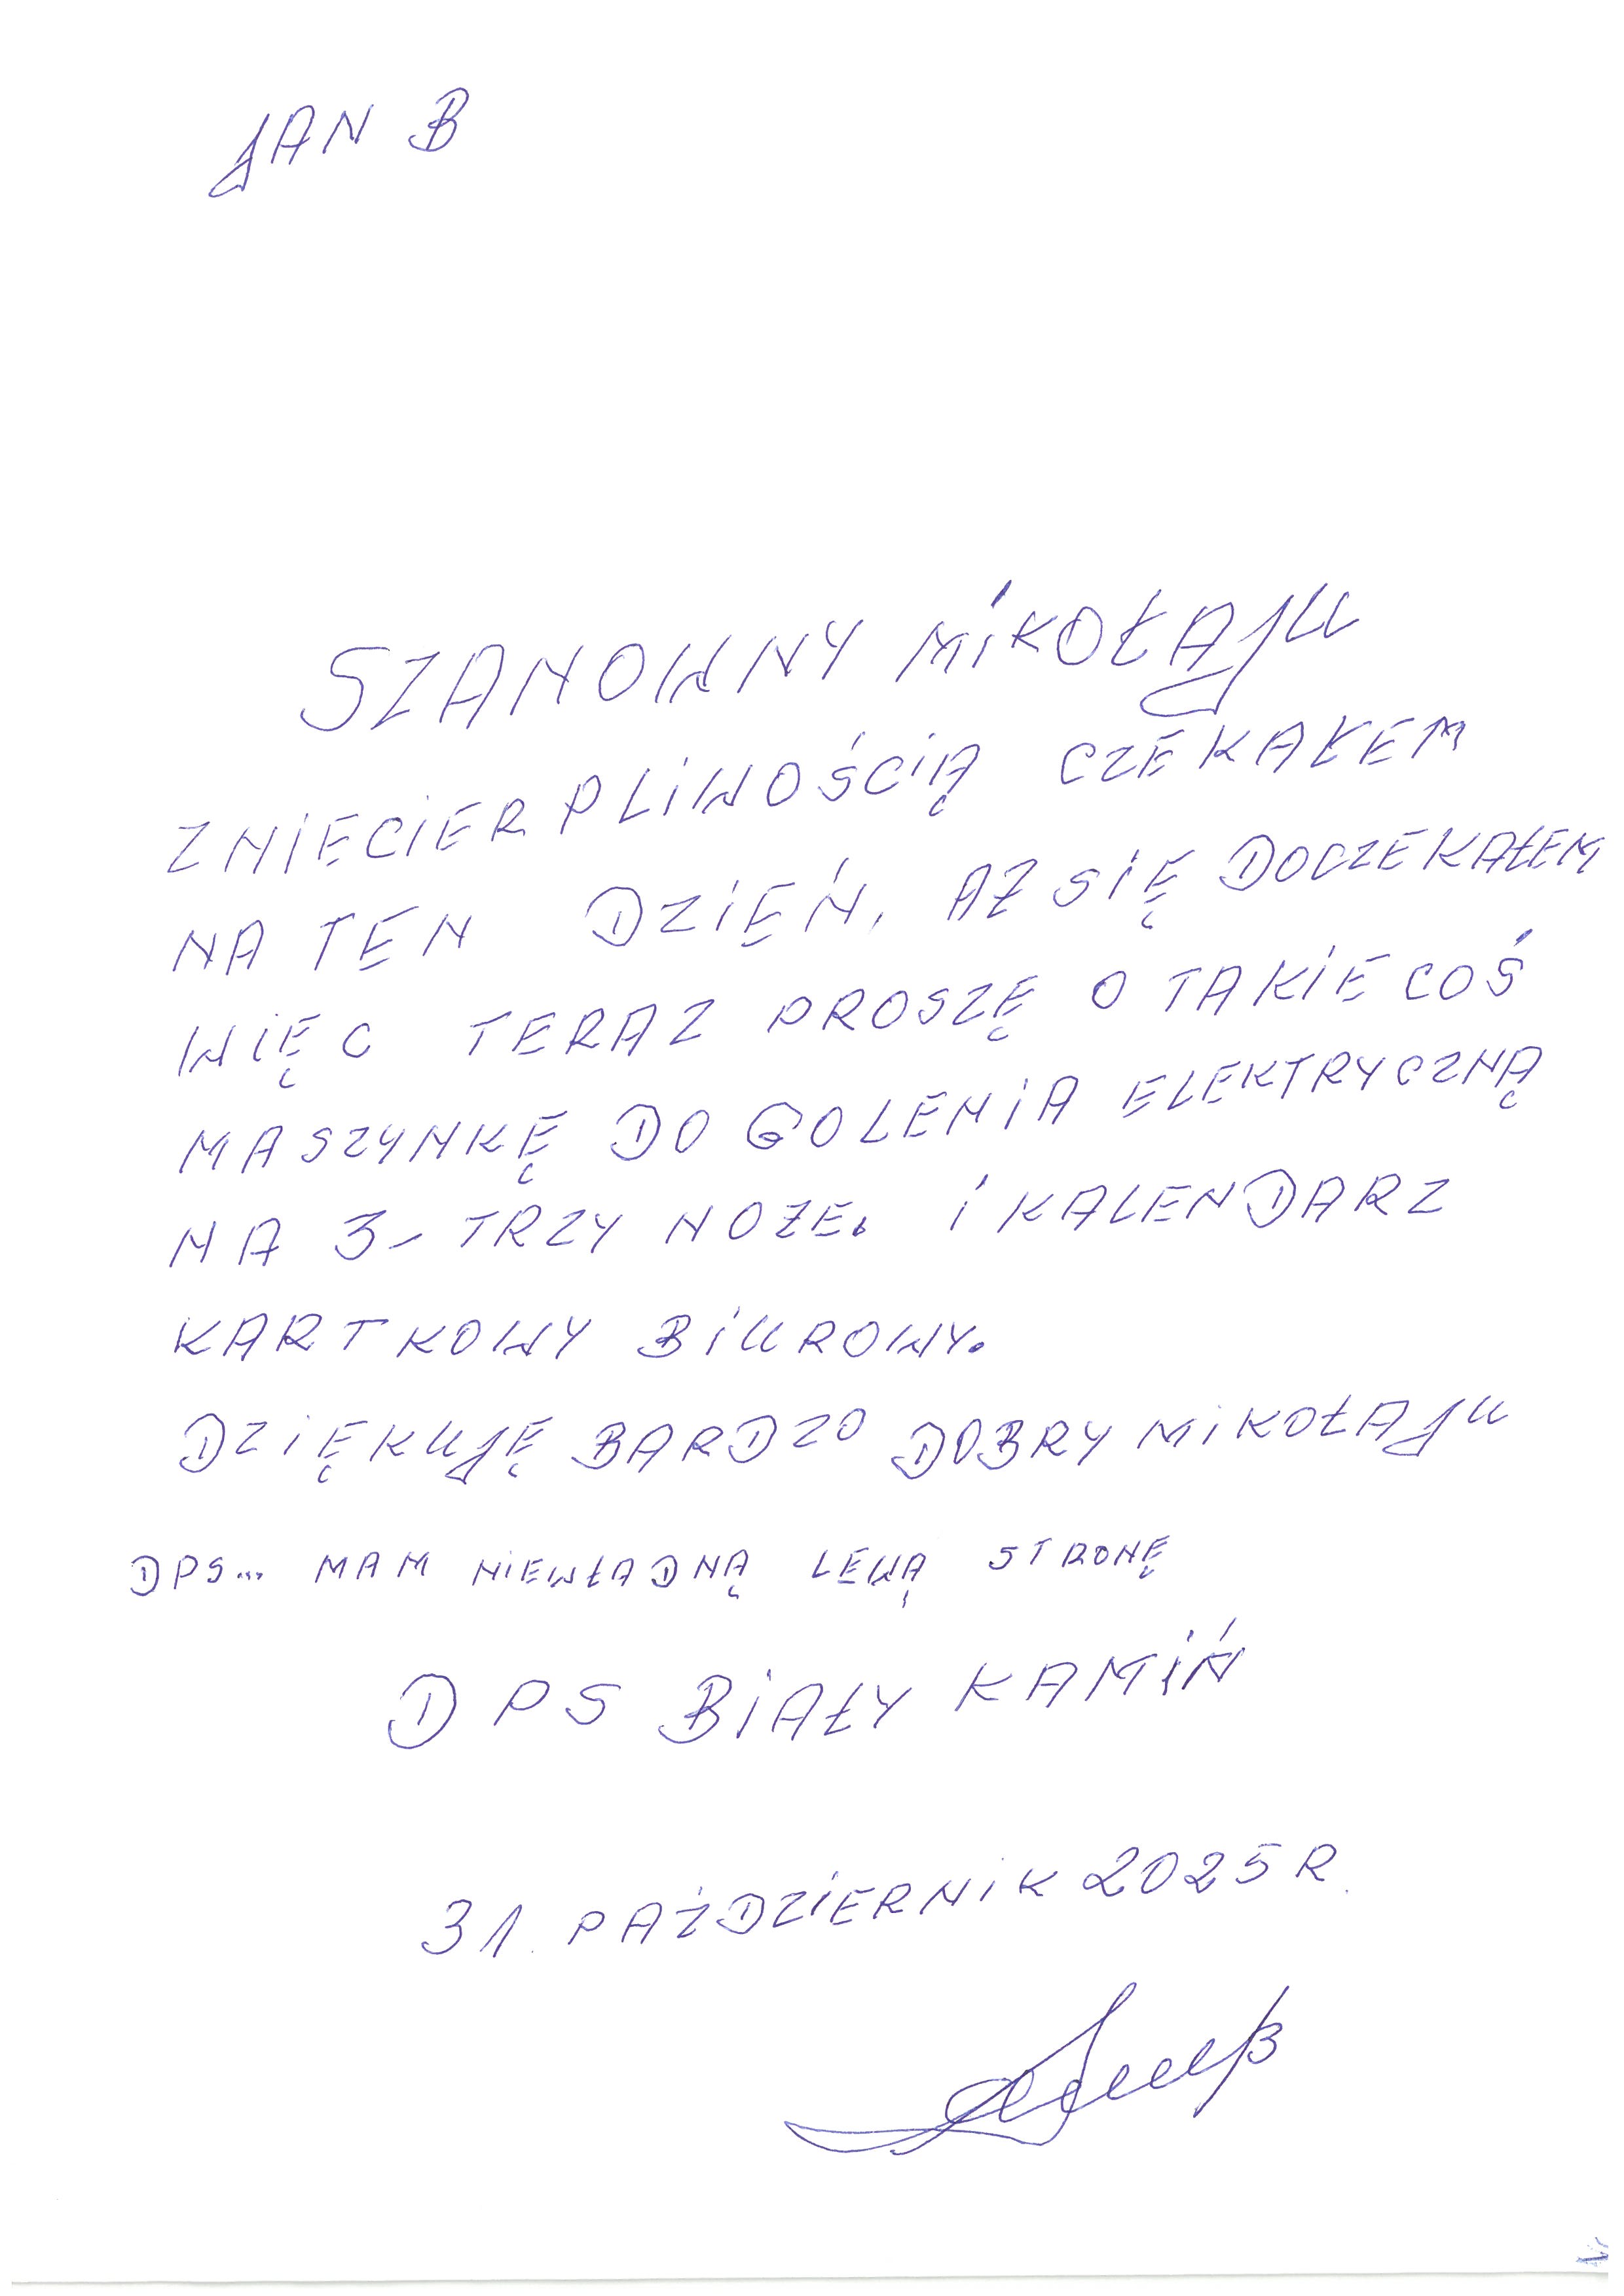 JAN B
SZANOWNY MIKOŁAJU
ZNIECIERPLIWOŚCIĄ CZEKAŁEM
NA TEN DZIEŃ, AŻ SIĘ DOCZEKAŁEM
WIĘC TERAZ PROSZĘ O TAKIE COŚ
MASZYNKĘ DO GOLENIA ELEKTRYCZNĄ
NA 3- TRZY NOŻE. I KALENDARZ
KARTKOWY BIUROWY.
DZIĘKUJĘ BARDZO DOBRY MIKOŁAJU
DPS... MAM NIEWŁADNĄ LEWĄ STRONĘ
DPS BIAŁY KAMIŃ
31. PAŻDZIERNIK 2025 R.